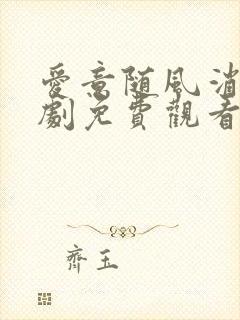 愛意随風消
劇免費觀看
齊玉